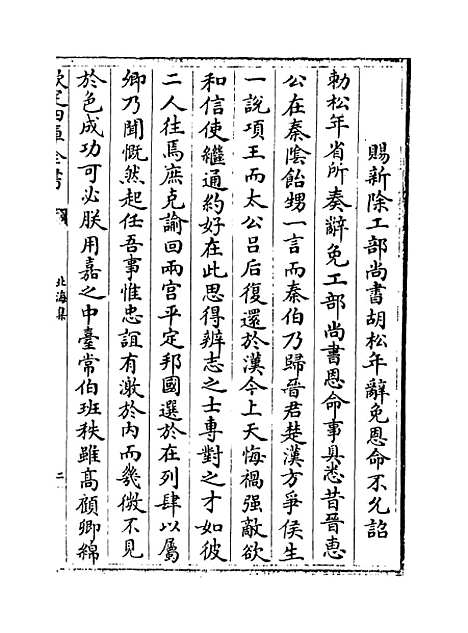 賜新除工部尚書胡松年辭免恩命不允詔
勅松年省所奏辭免工部尚書恩命事具悉昔晉惠
公在秦陰飴甥一言而秦伯乃歸晉君楚漢方爭侯生
一說項王而太公呂后復還於漢今上天悔禍强敵欲
和信使繼通約好在此思得辨志之士專對之才如彼
二人往焉庶克諭回兩宫平定邦國選於在列肆以屬
卿乃聞慨然起任吾事惟忠誼有激於内而幾微不見
於色成功可必朕用嘉之中臺常伯班秩雖高顧卿綿
欽定四庫全書
北海集
二